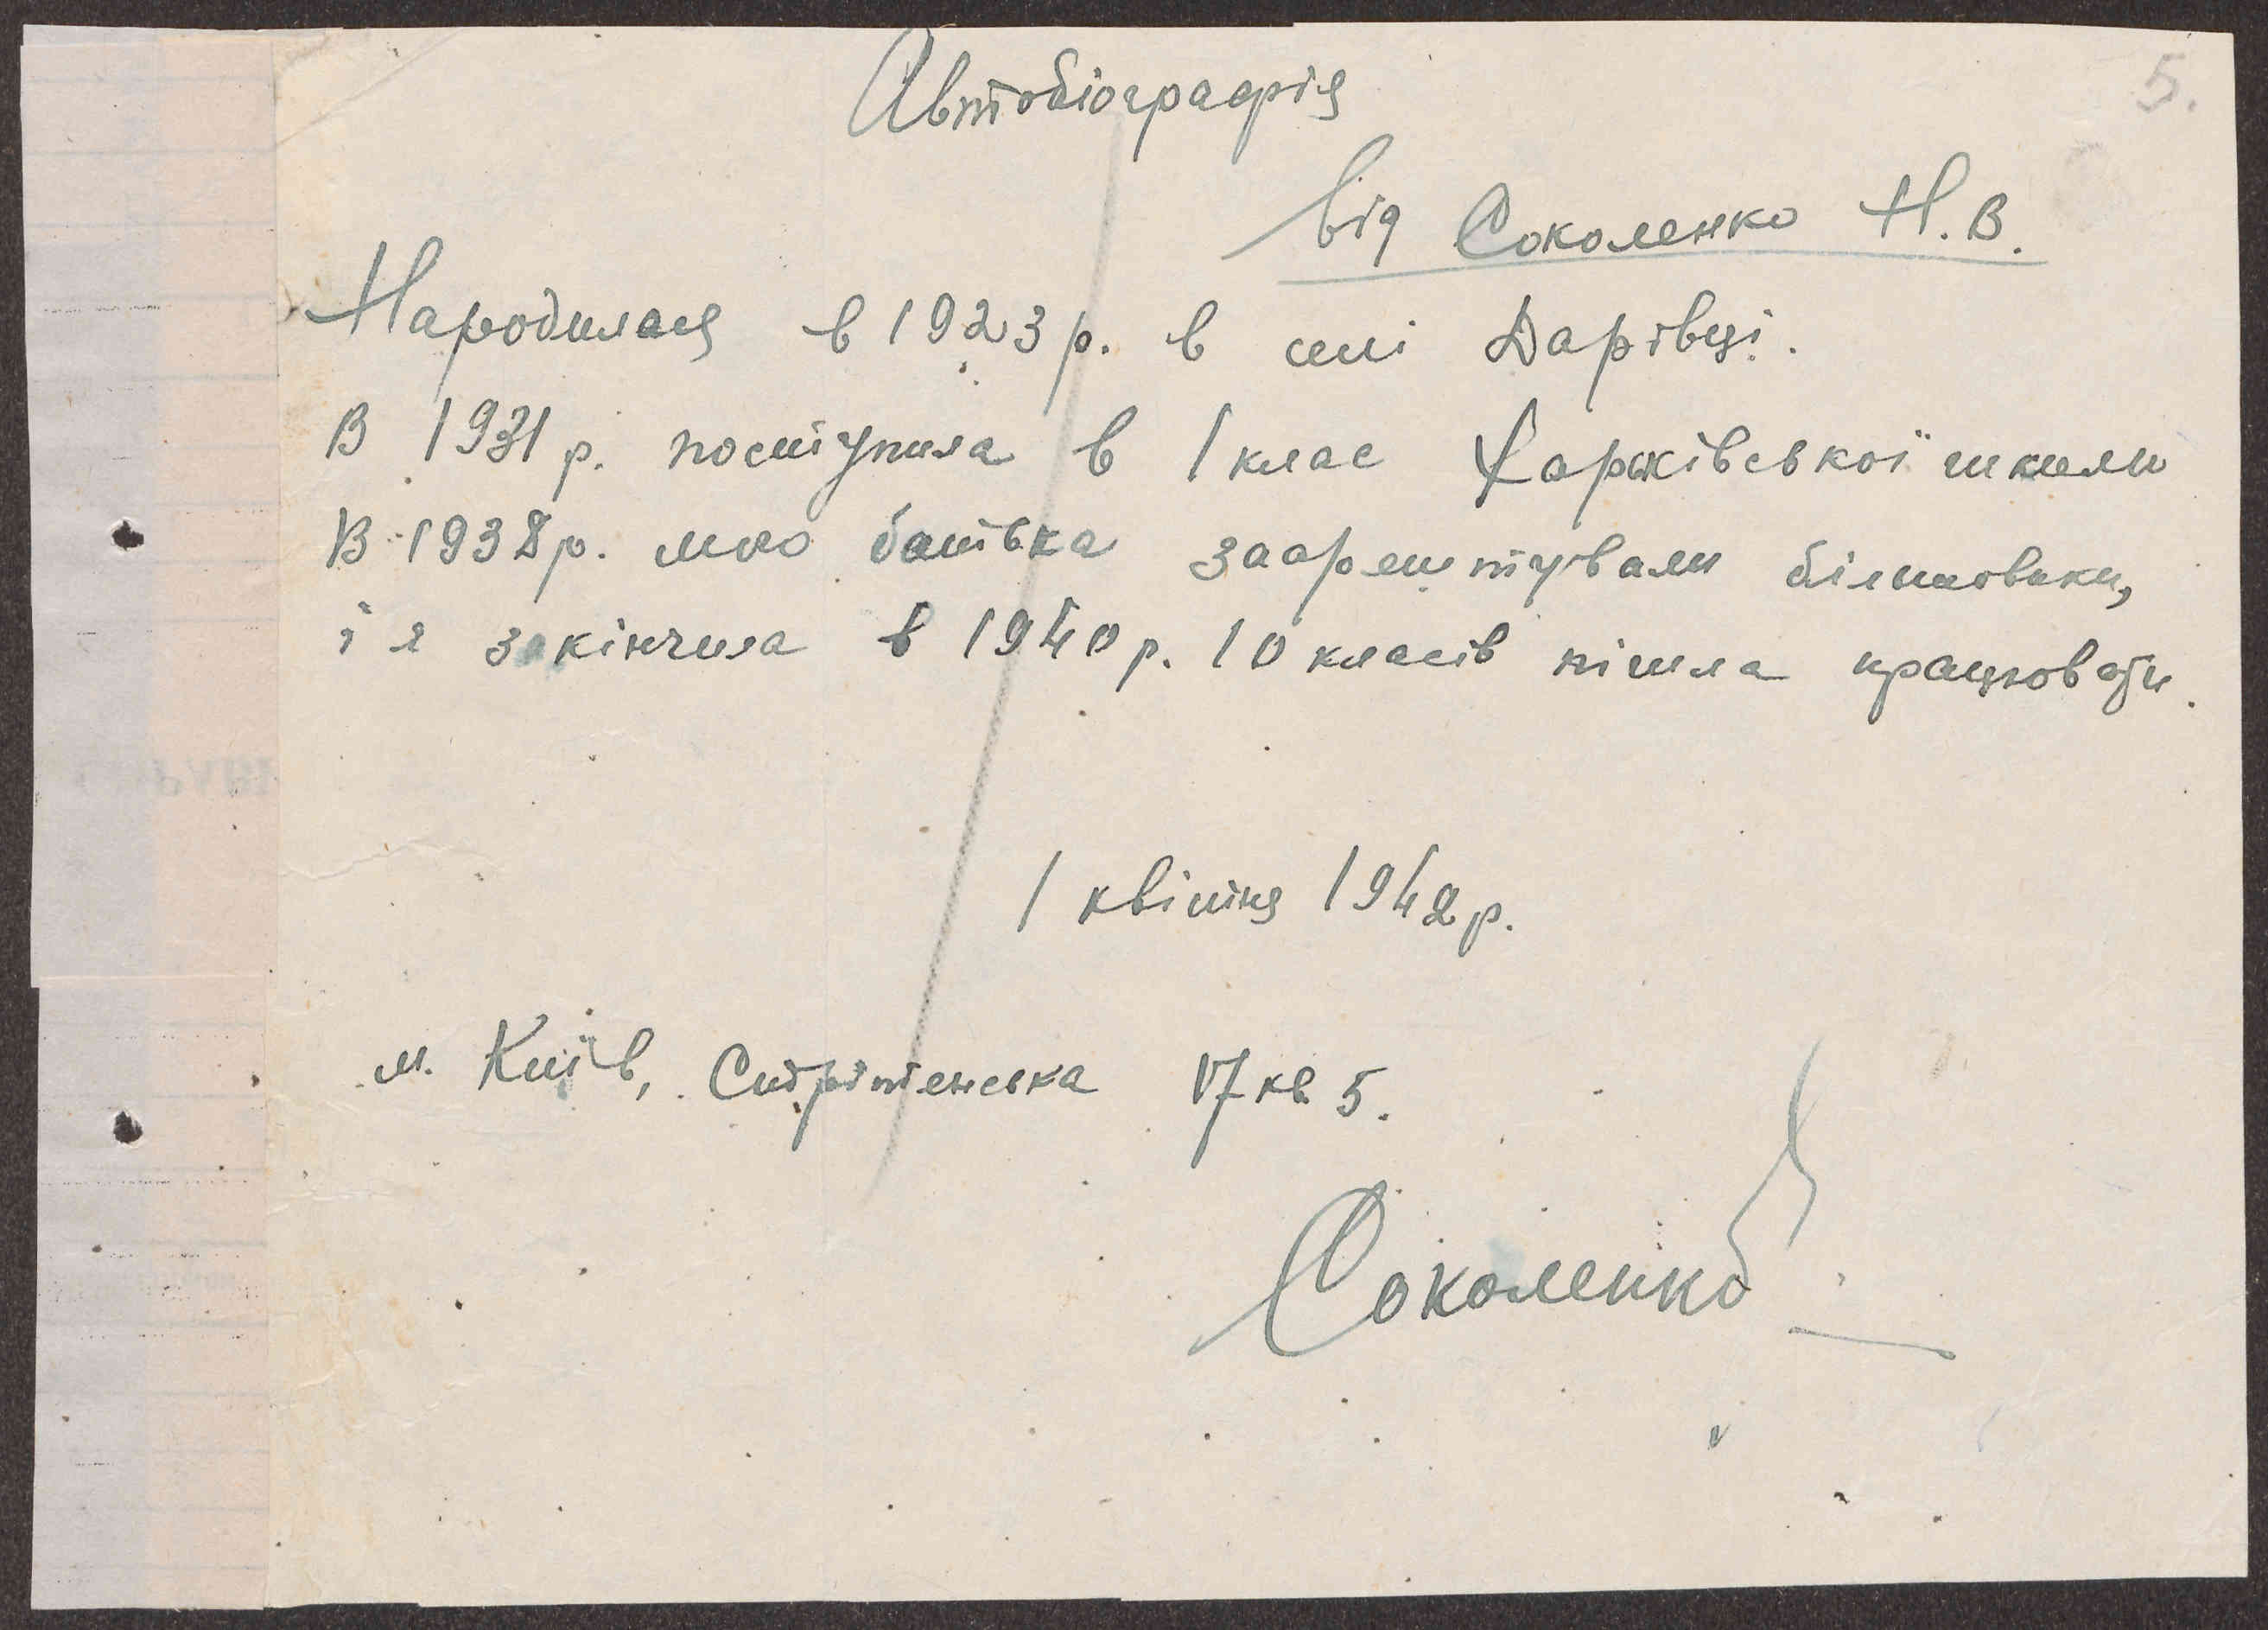 5.
Автобіографія
від Соколенко Н.В.
Народилася в 1923 р. в селі Дарівці.
В 1931 р. поступила в 1 клас Харківської школи
В 1938 р. мого батька заарештували більшовики,
і я закінчила в 1940 р. 10 класів пішла працювати.
1 квітня 1942 р.
м. Київ, Стрітенська 17 кв 5.
Соколенко